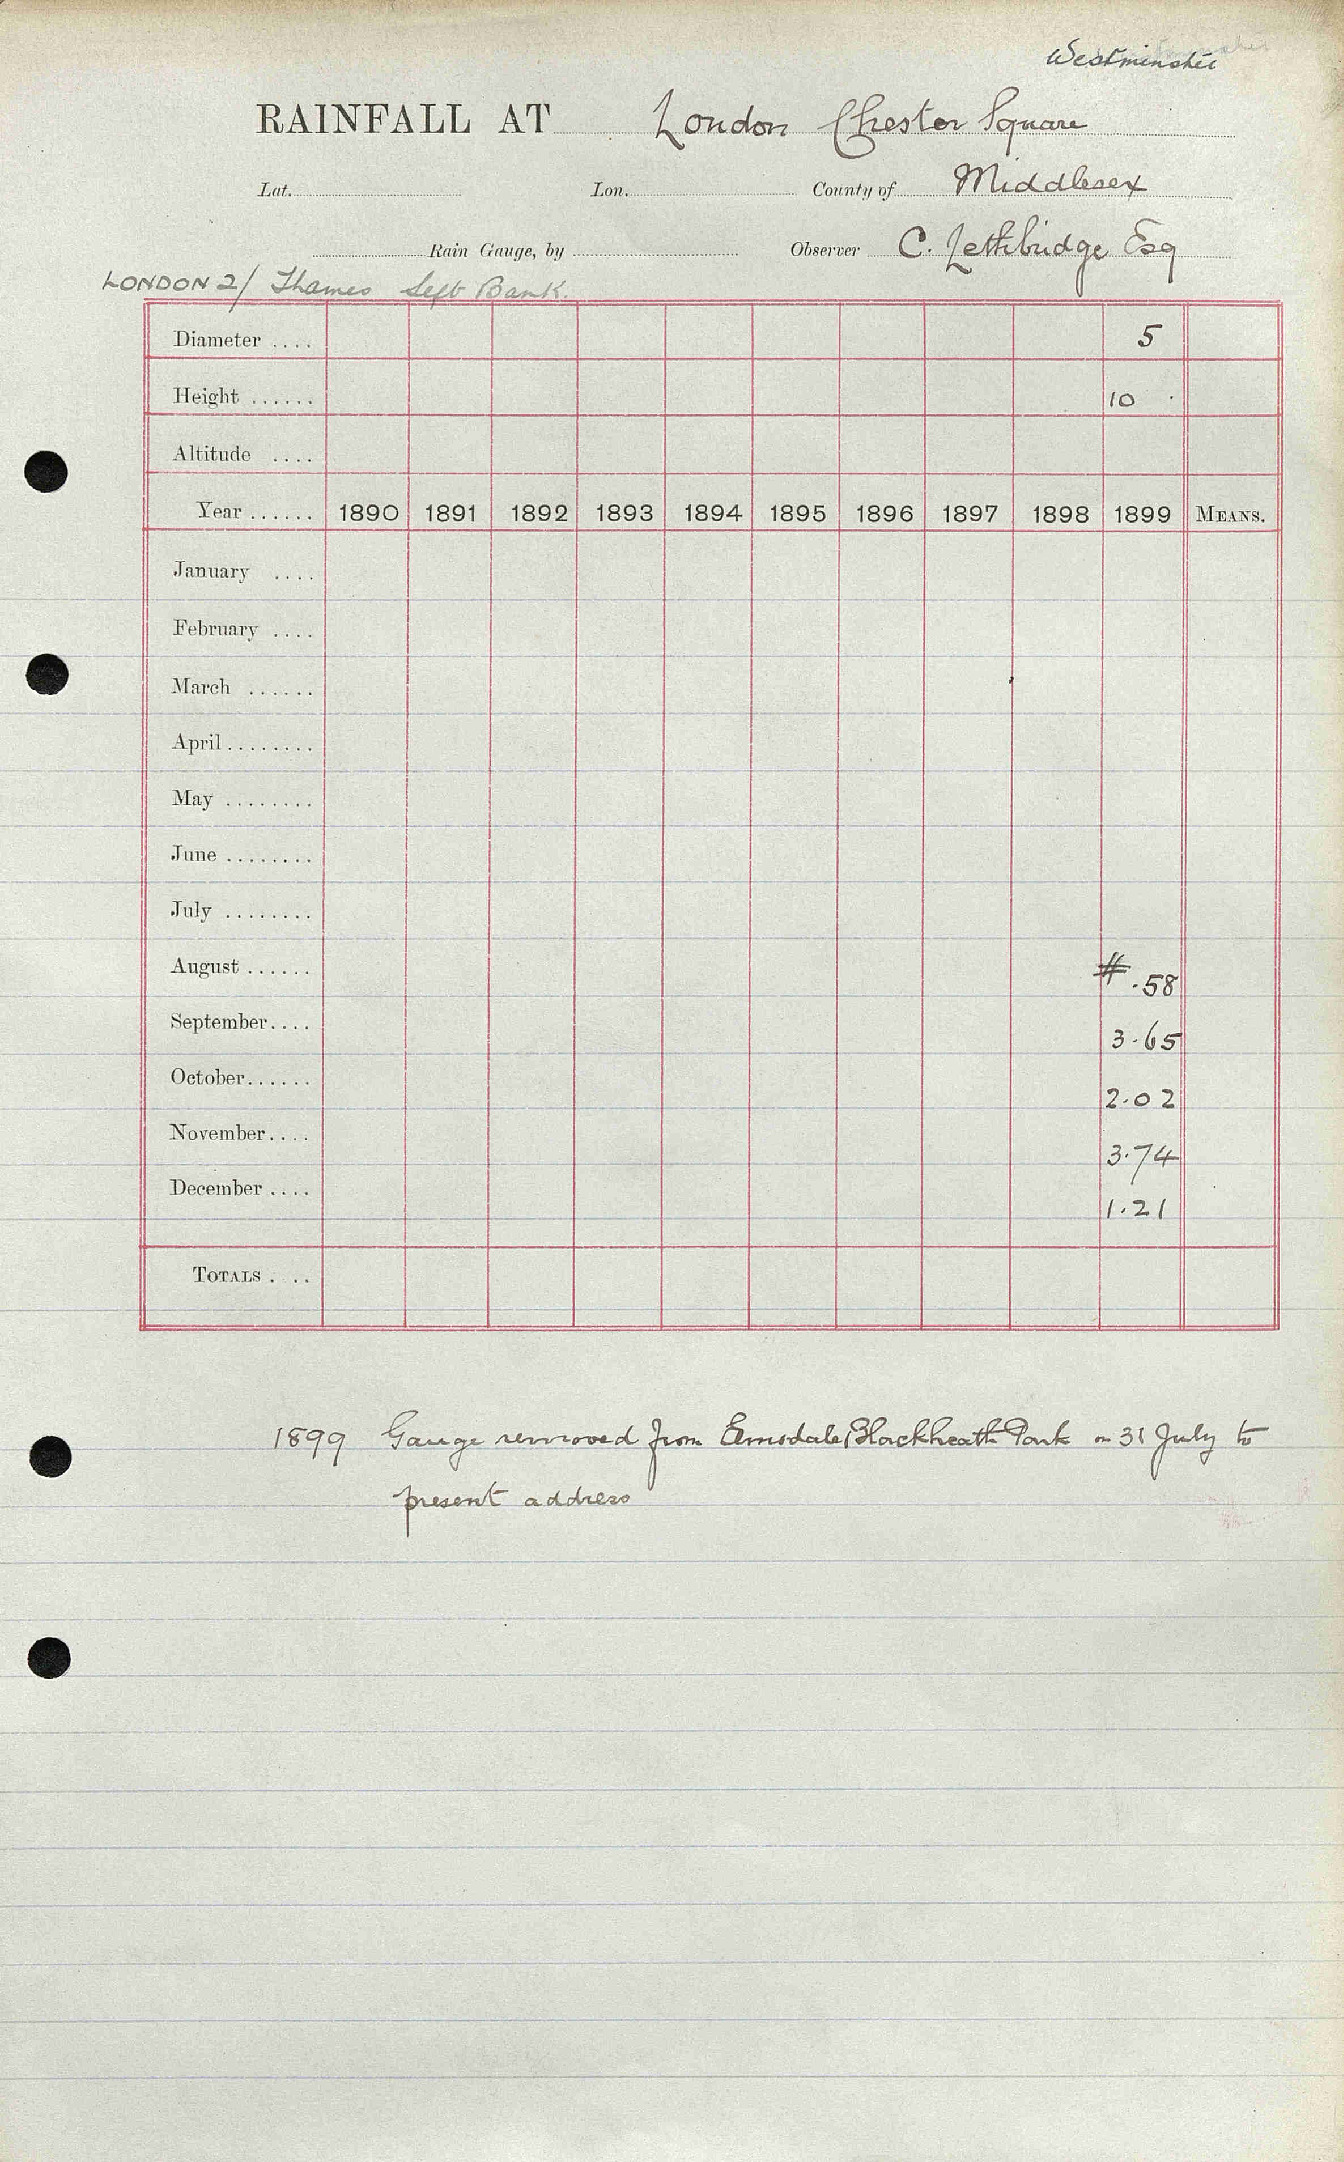 Westminster
RAINFALL AT London Chester Square
Lat. Lon. County of Middlesex
Rain Gauge, by Observer C. Lethbridge Esq
LONDON 2/ Thames Left Bank.
Diameter .... 5
Height ...... 10
Altitude ....
Year ...... 1890 1891 1892 1893 1894 1895 1896 1897 1898 1899 MEANS.
January ....
February ....
March ......
April ........
May ........
June ........
July ........
August ...... # .58
September.... 3.65
October...... 2.02
November.... 3.74
December .... 1.21
TOTALS . ..
1899 Gauge removed from Elmsdale, Blackheath Park on 31 July to
present address